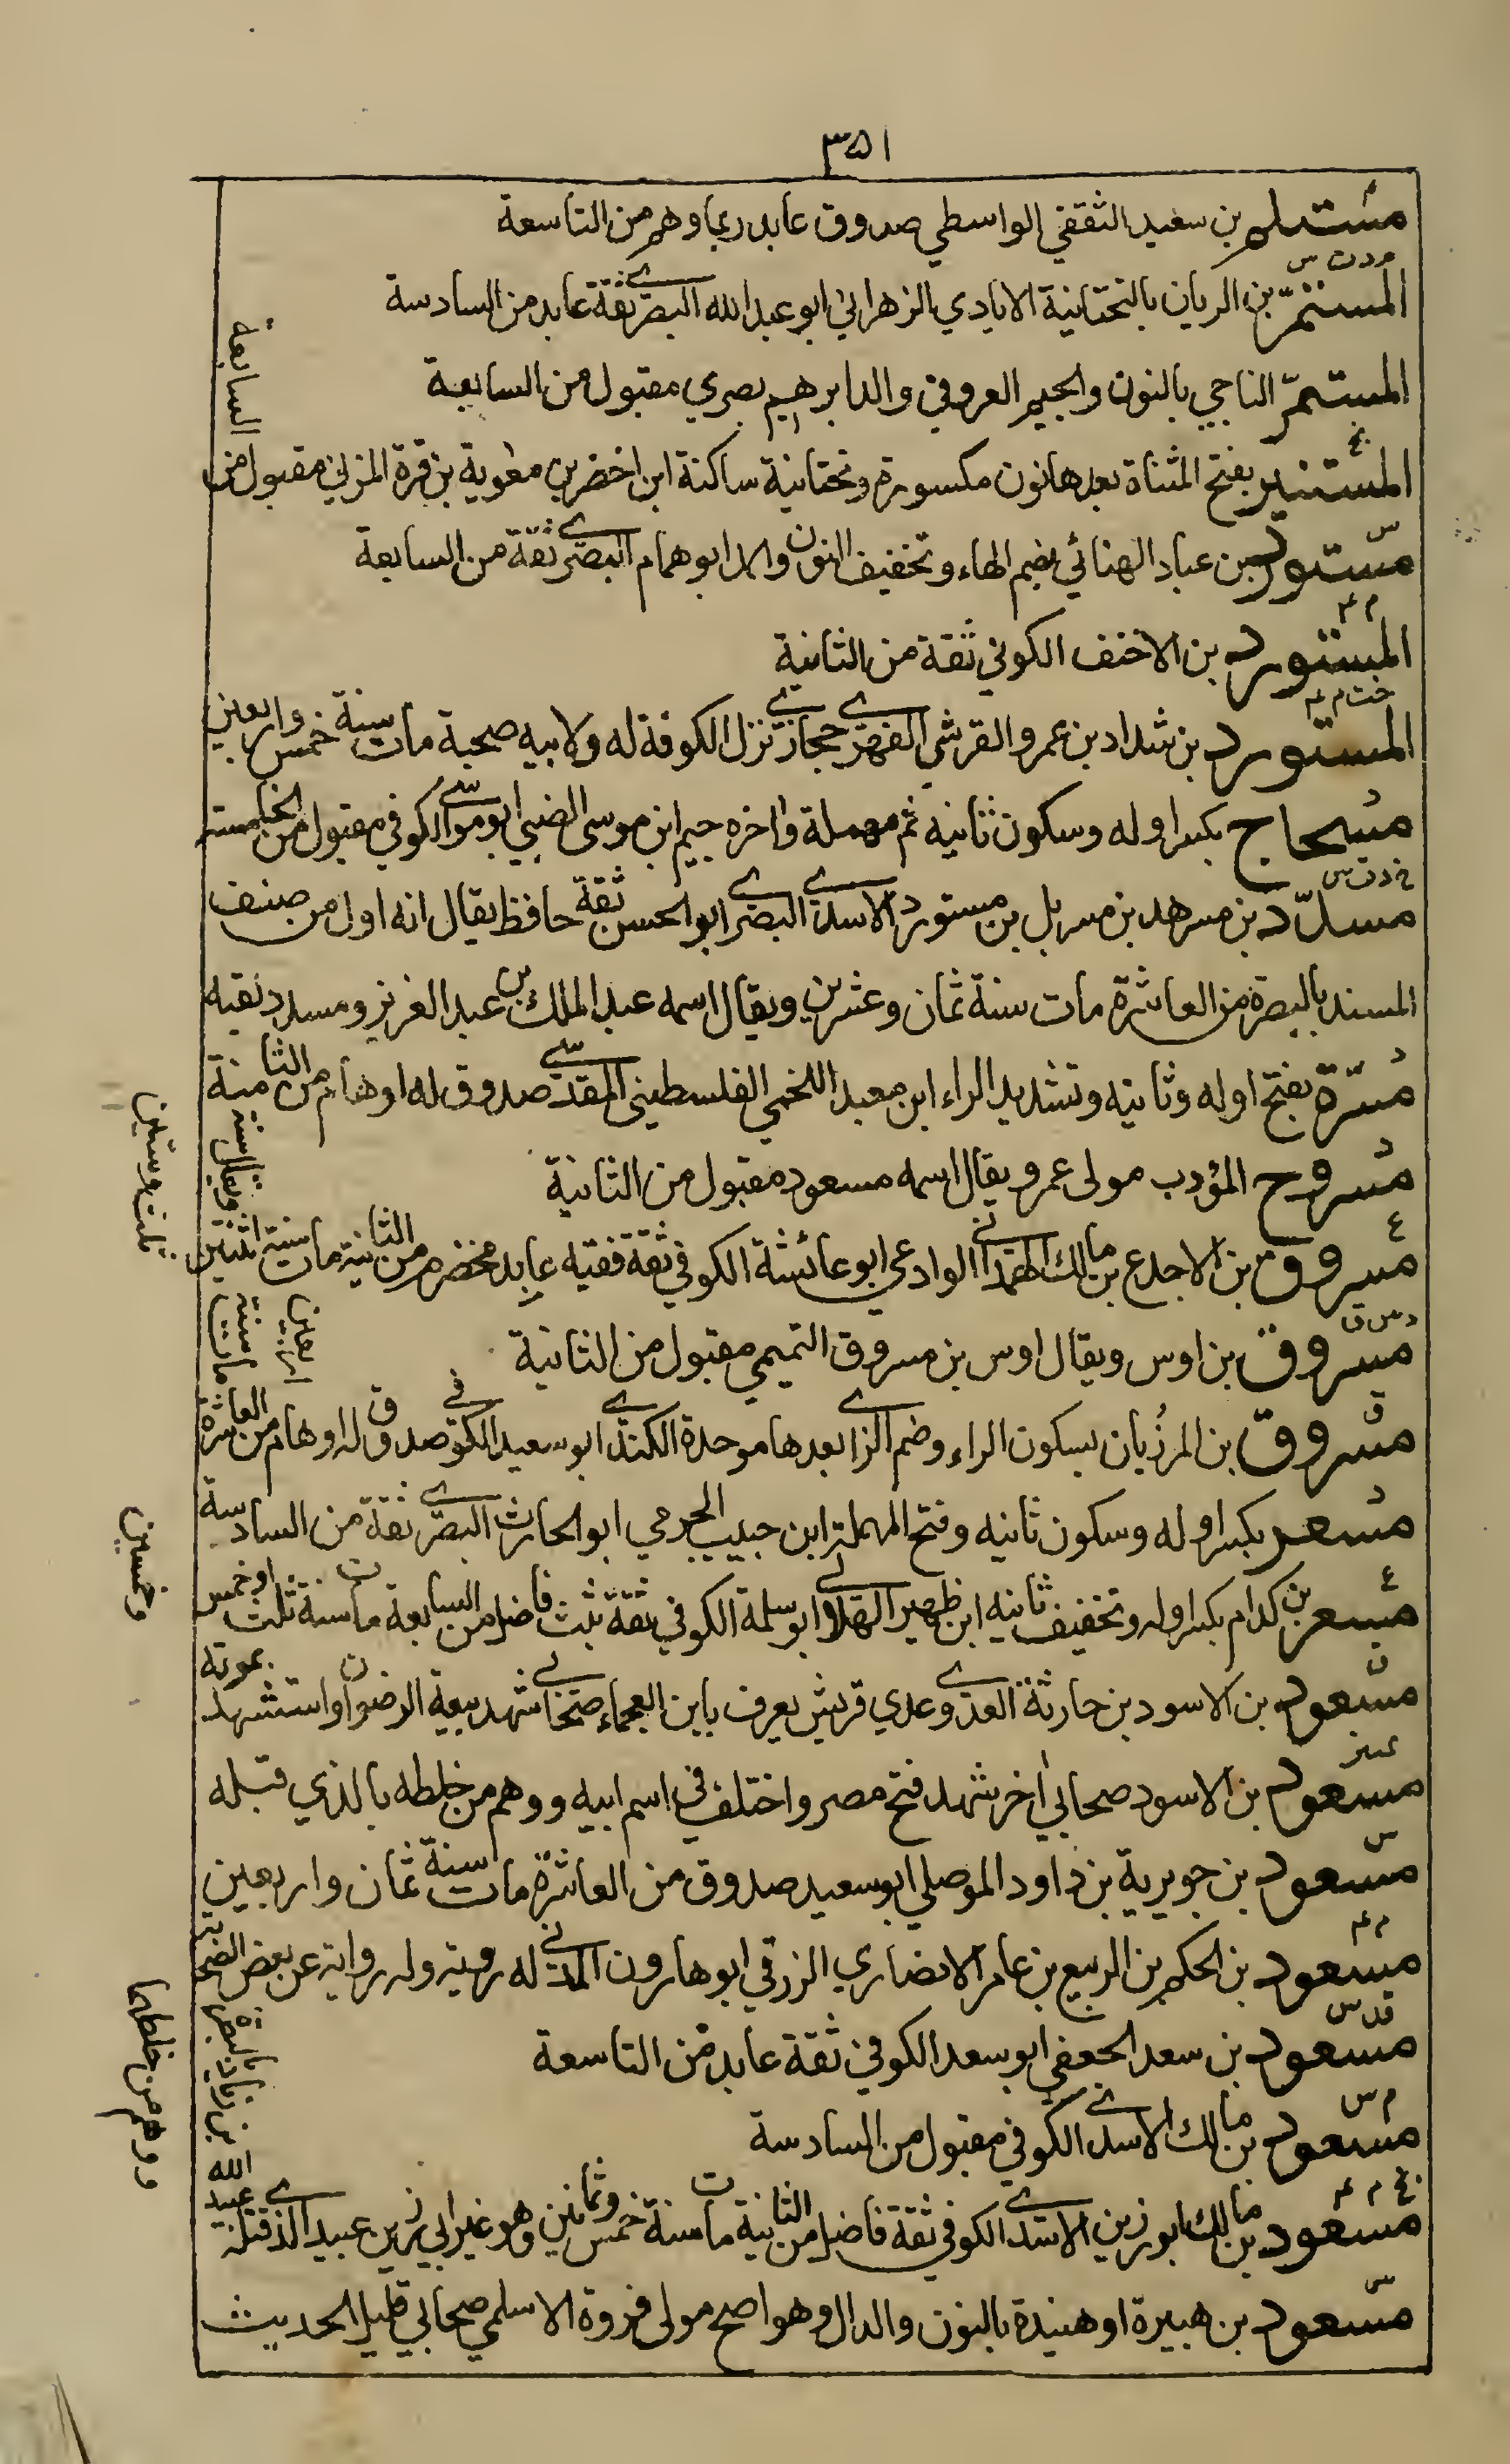 ٣٥١
م
مستلم بن سعيد الثقفي الواسطي صدوق عابد ربما وهم من التاسعة
م د ت س
المستمرّ بن الريان بالتحتانية الايادي بالزهراني ابو عبدالله البصري ثقة عابد من السادسة
المستمرّ الناجي بالنون والجيم العروقي والد ابرهيم بصري مقبول من السابعة
بخ
المستنير بفتح المثناة بعدها نون مكسورة وتحتانية ساكنة ابن اخضر بن معوية بن قرة المزني مقبول من السابعة
س
مستور بن عباد الهنائي بضم الهاء وتخفيف النون والمد ابو همام البصري ثقة من السابعة
م عم
المستورد بن الاحنف الكوفي ثقة من الثانية
خت م عم
المستورد بن شداد بن عمرو القرشي الفهري حجازي نزل الكوفة له ولابيه صحبة مات سنة خمس واربعين
د
مسحاج بكسر اوله وسكون ثانيه ثم مهملة واخره جيم ابن موسى الضبي ابو موسى الكوفي مقبول من الخامسة
خ د ت س
مسدّد بن مسرهد بن مسربل بن مستورد الاسدي البصري ابو الحسن ثقة حافظ يقال انه اول من صنف
المسند بالبصرة من العاشرة مات سنة ثمان وعشرين ويقال اسمه عبد الملك بن عبد العزيز ومسدد لقبه
د
مسرّة بفتح اوله وثانيه وتشديد الراء ابن معبد اللخمي الفلسطيني المقدسي صدوق له اوهام من الثامنة
د
مسروح المؤدب مولى عمر ويقال اسمه مسعود مقبول من الثانية
ع
مسروق بن الاجدع بن مالك الهمداني الوادعي ابو عائشة الكوفي ثقة فقيه عابد مخضرم من الثانية مات سنة اثنتين
ويقال سنة ثلث وستين
د س ق
مسروق بن اوس ويقال اوس بن مسروق التميمي مقبول من الثانية
ق
مسروق بن المرزُبان بسكون الراء وضم الزا بعدها موحدة الكندي ابو سعيد الكوفي صدوق له اوهام من العاشرة
مات سنة اربعين
د
مسعر بكسر اوله وسكون ثانيه وفتح المهملة ابن حبيب الجرمي ابو الحارث البصري ثقة من السادسة
ع
مسعر بن كدام بكسر اوله وتخفيف ثانيه ابن ظهير الهلالي ابو سلمة الكوفي ثقة ثبت فاضل من السابعة مات سنة ثلث او خمس
وخمسين
ق
مسعود بن الاسود بن حارثة العدوي عدي قريش يعرف بابن العجماء صحابي شهد بيعة الرضوان واستشهد بموتة
تمييز
مسعود بن الاسود صحابي اخر شهد فتح مصر واختلف في اسم ابيه ووهم من خلطه بالذي قبله
س
مسعود بن جويرية بن داود الموصلي ابو سعيد صدوق من العاشرة مات سنة ثمان واربعين
م عم
مسعود بن الحكم بن الربيع بن عامر الانصاري الزرقي ابو هارون المدني له رؤية وله رواية عن بعض الصحابة
قد س
مسعود بن سعد الجعفي ابو سعد الكوفي ثقة عابد من التاسعة
م س
مسعود بن مالك الاسدي الكوفي مقبول من السادسة
بخ م عم
مسعود بن مالك ابو رزين الاسدي الكوفي ثقة فاضل من الثانية مات سنة خمس وثمانين وهو غير ابي رزين عبيد الذي قتله عبيد
الله بن زياد بالبصرة ووهم من خلطهما
س
مسعود بن هبيرة او هنيدة بالنون والدال وهو اصح مولى فروة الاسلمي صحابي قليل الحديث